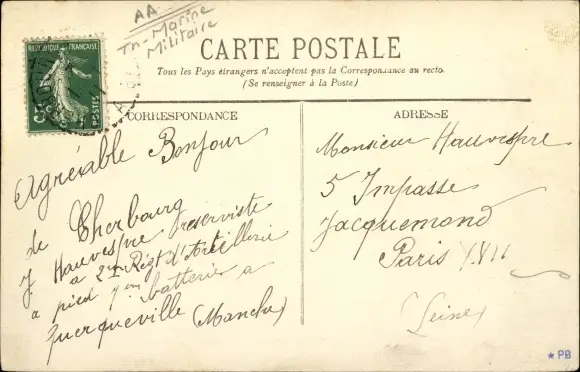 AA
Tn-Marine
Militaire
RÉPUBLIQUE FRANÇAISE
POSTES
5c
CARTE POSTALE
Tous les Pays étrangers n'acceptent pas la Correspondance au recto.
(Se renseigner à la Poste)
CORRESPONDANCE
Agréable Bonjour
de Cherbourg
J Hauvespre reserviste
a 2me Régt d'Artillerie
a pied 7em batterie a
Querqueville (Manche)
ADRESSE
Monsieur Hauvespre
5 Impasse
Jacquemond
Paris XVII
(Seine)
★PB